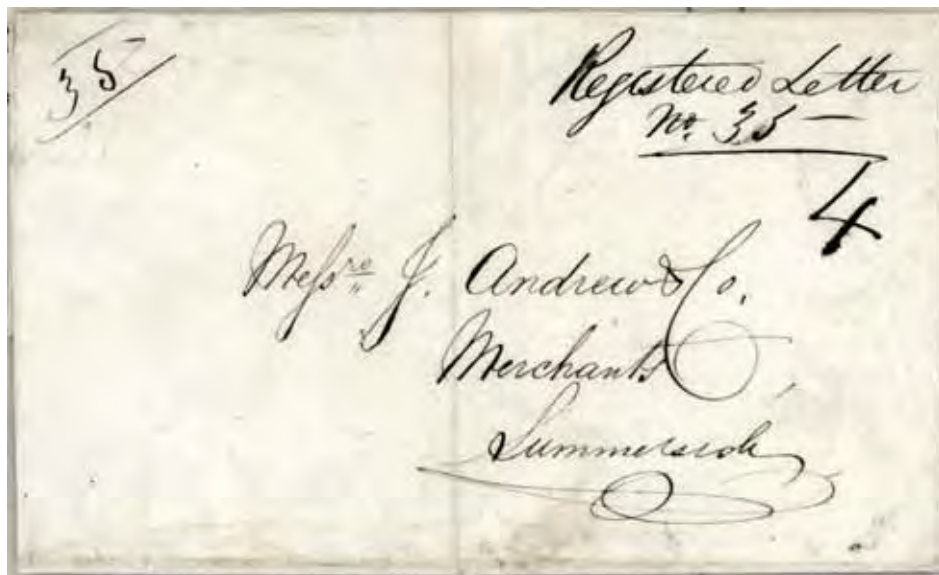 35
Registered Letter
No. 35 —
4
Messrs J. Andrew & Co.
Merchants,
Summerside